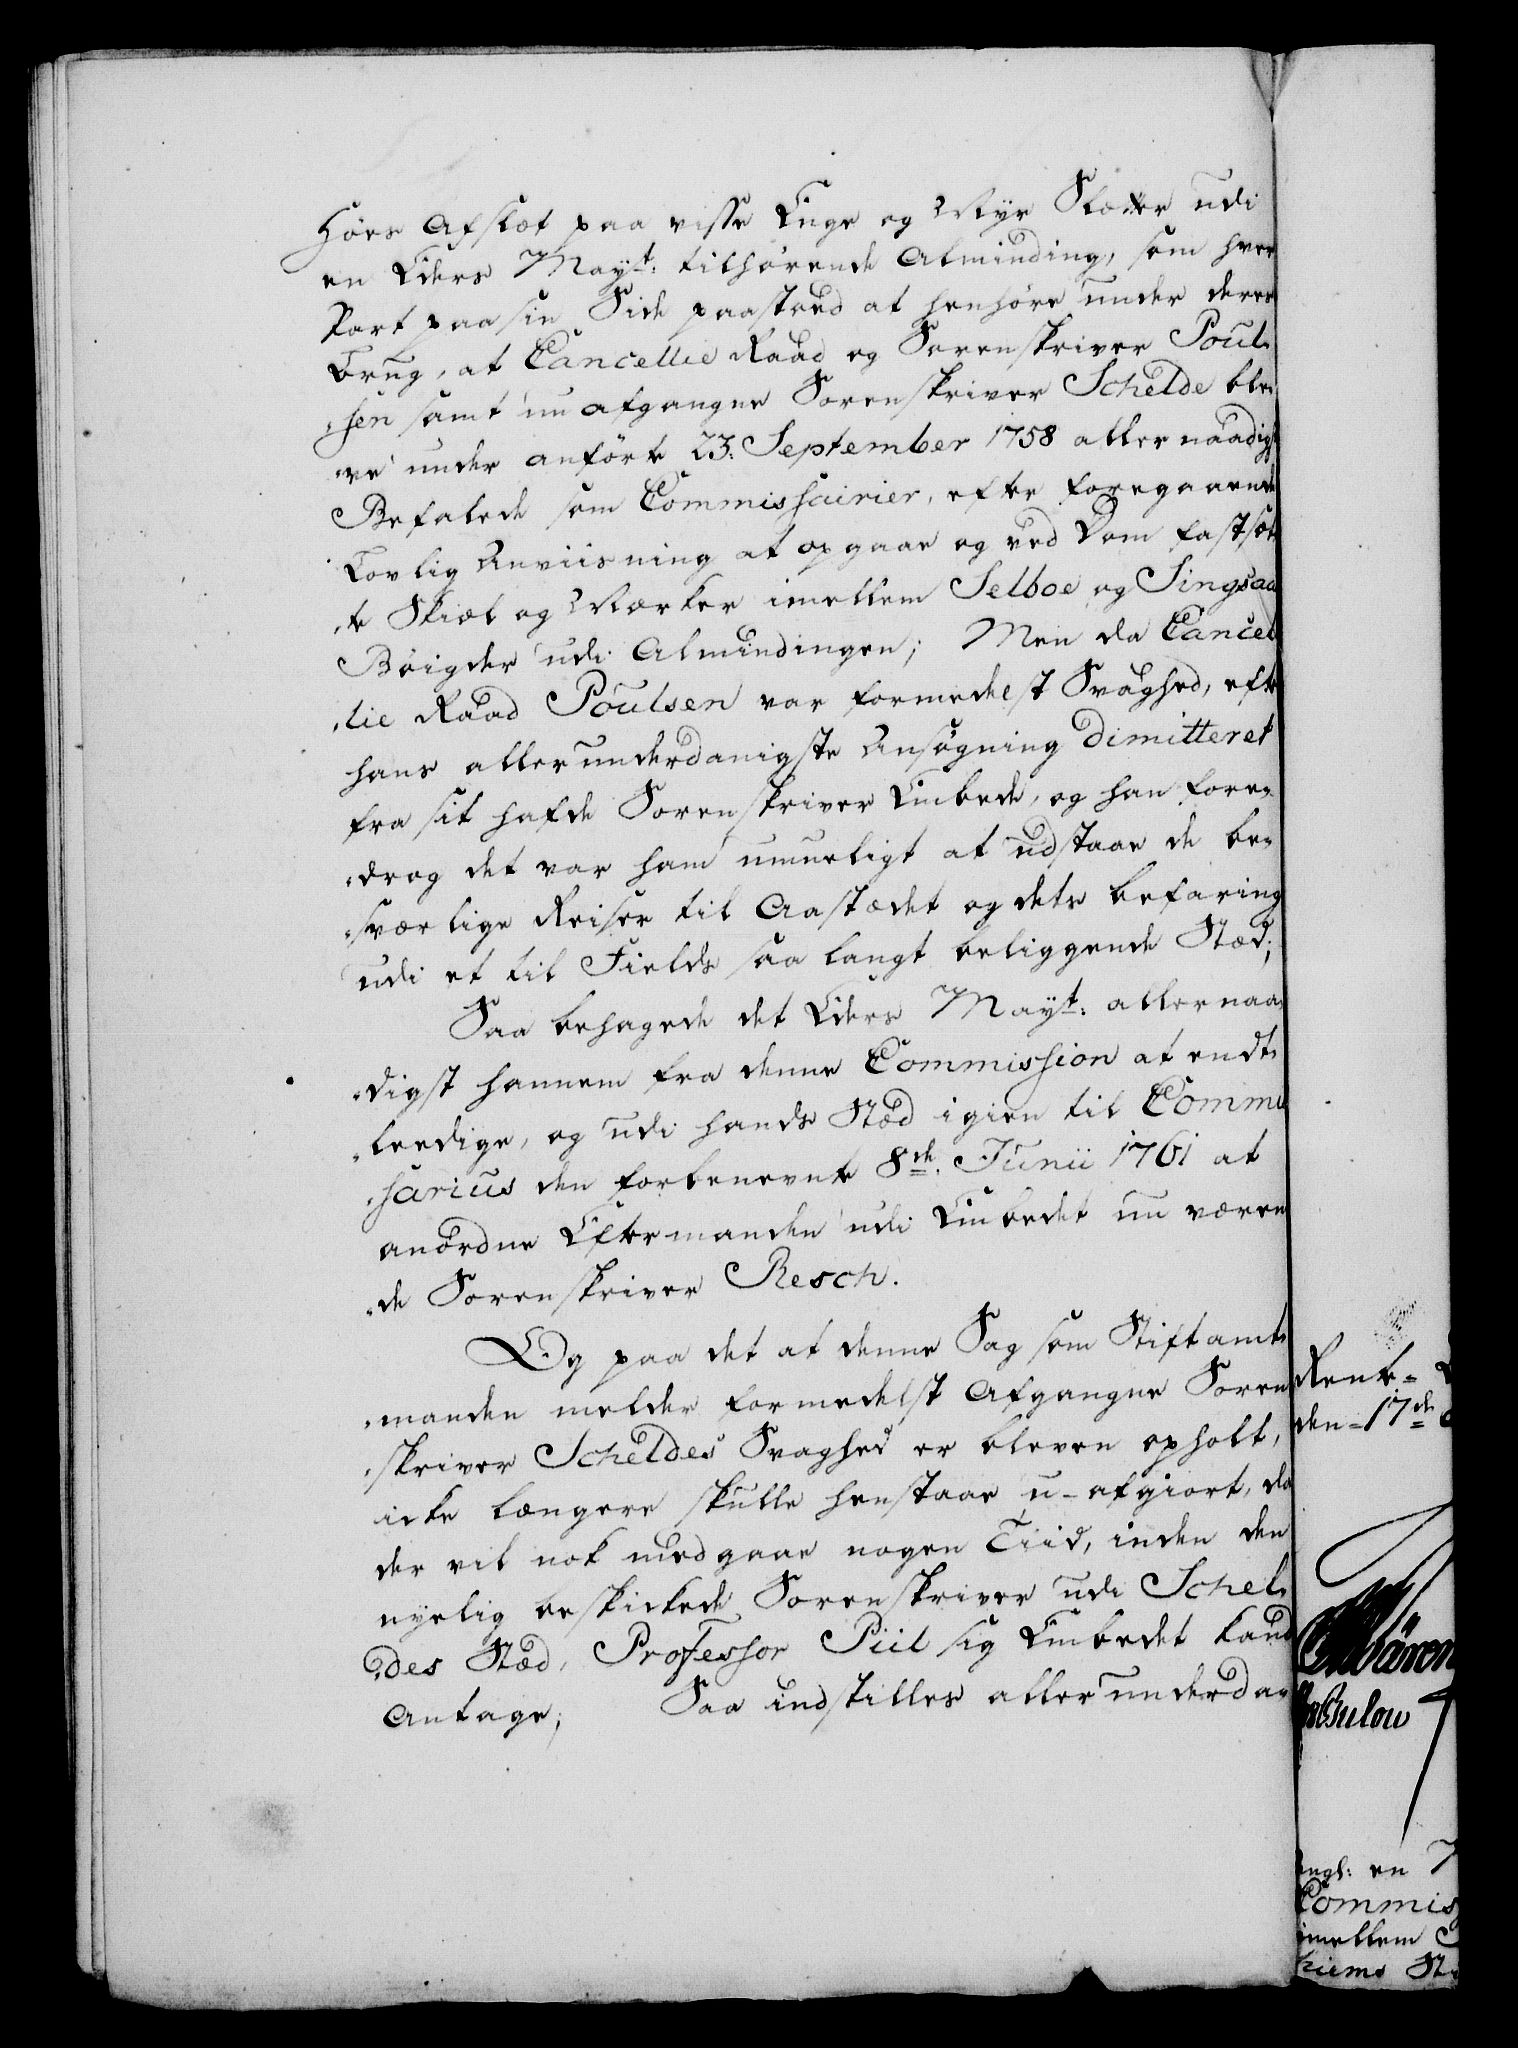 Høes Afslæt paa visse Enge og Myr Slætter udi
en Eders Mayt: tilhørende Alminding, som hver
Part paa sin Side paastoed at henhøre under deres
Brug, at Cancellie Raad og Sorenskriver Poul-
sen samt nu afgangne Sorenskriver Schelde ble-
ve under anførte 23: September 1758 allernaadigst
Befalede som Commissairier, efter foregaaende
Lovlig Anviisning at opgaae og ved Dom fastsæt-
te Skiæl og Mærker imellem Selboe og Singsaas
Bøigder udi Almindingen; Men da Cancel-
lie Raad Poulsen var formedelst Svaghed, efter
hans allerunderdanigste Ansøgning dimitteret
fra sit hafde Sorenskriver Embede, og han fore-
drog det var ham umueligt at udstaae de be-
sværlige Reiser til Aastædet og dets befaring
udi et til Fields saa langt beliggende Stæd;
Saa behagede det Eders Mayt: allernaa-
digst hannem fra denne Commission at endt-
leedige, og udi hands Stæd igien til Commis-
sarius den forbenevnte 8de Junii 1761 at
anordne Eftermanden udi Embedet nu væren-
de Sorenskriver Resch.
Og paa det at denne Sag som Stiftamt-
manden melder formedelst Afgangne Soren-
skriver Scheldes Svaghed er bleven opholt,
icke længere skulle henstaae u-afgiort, da
der vil nok medgaae nogen Tiid, inden den
nyelig beskickede Sorenskriver udi Schel-
des Stæd, Professor Piil sig Embedet kand
Antage; Saa indstilles allerunderda-
Rente-
den 17de
Bulow
en
Commis
imellem